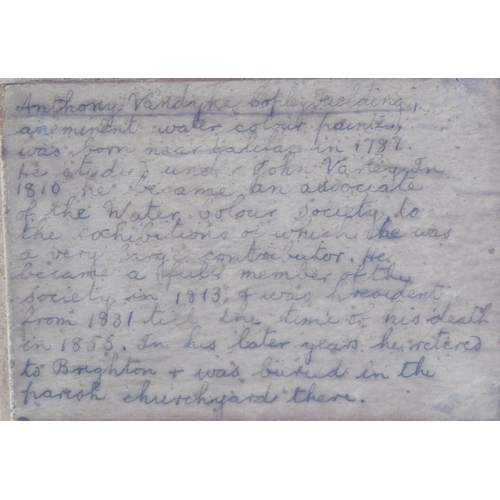 Anthony Vandyke Copley Fielding,
an eminent water colour painter,
was born near Halifax in 1787.
He studied under John Varley. In
1810 he became an associate
of the Water Colour Society, to
the exhibitions of which he was
a very large contributor. He
became a full member of the
society in 1813, & was president
from 1831 till the time of his death
in 1855. In his later years he retered
to Brighton & was buried in the
parish churchyard there.